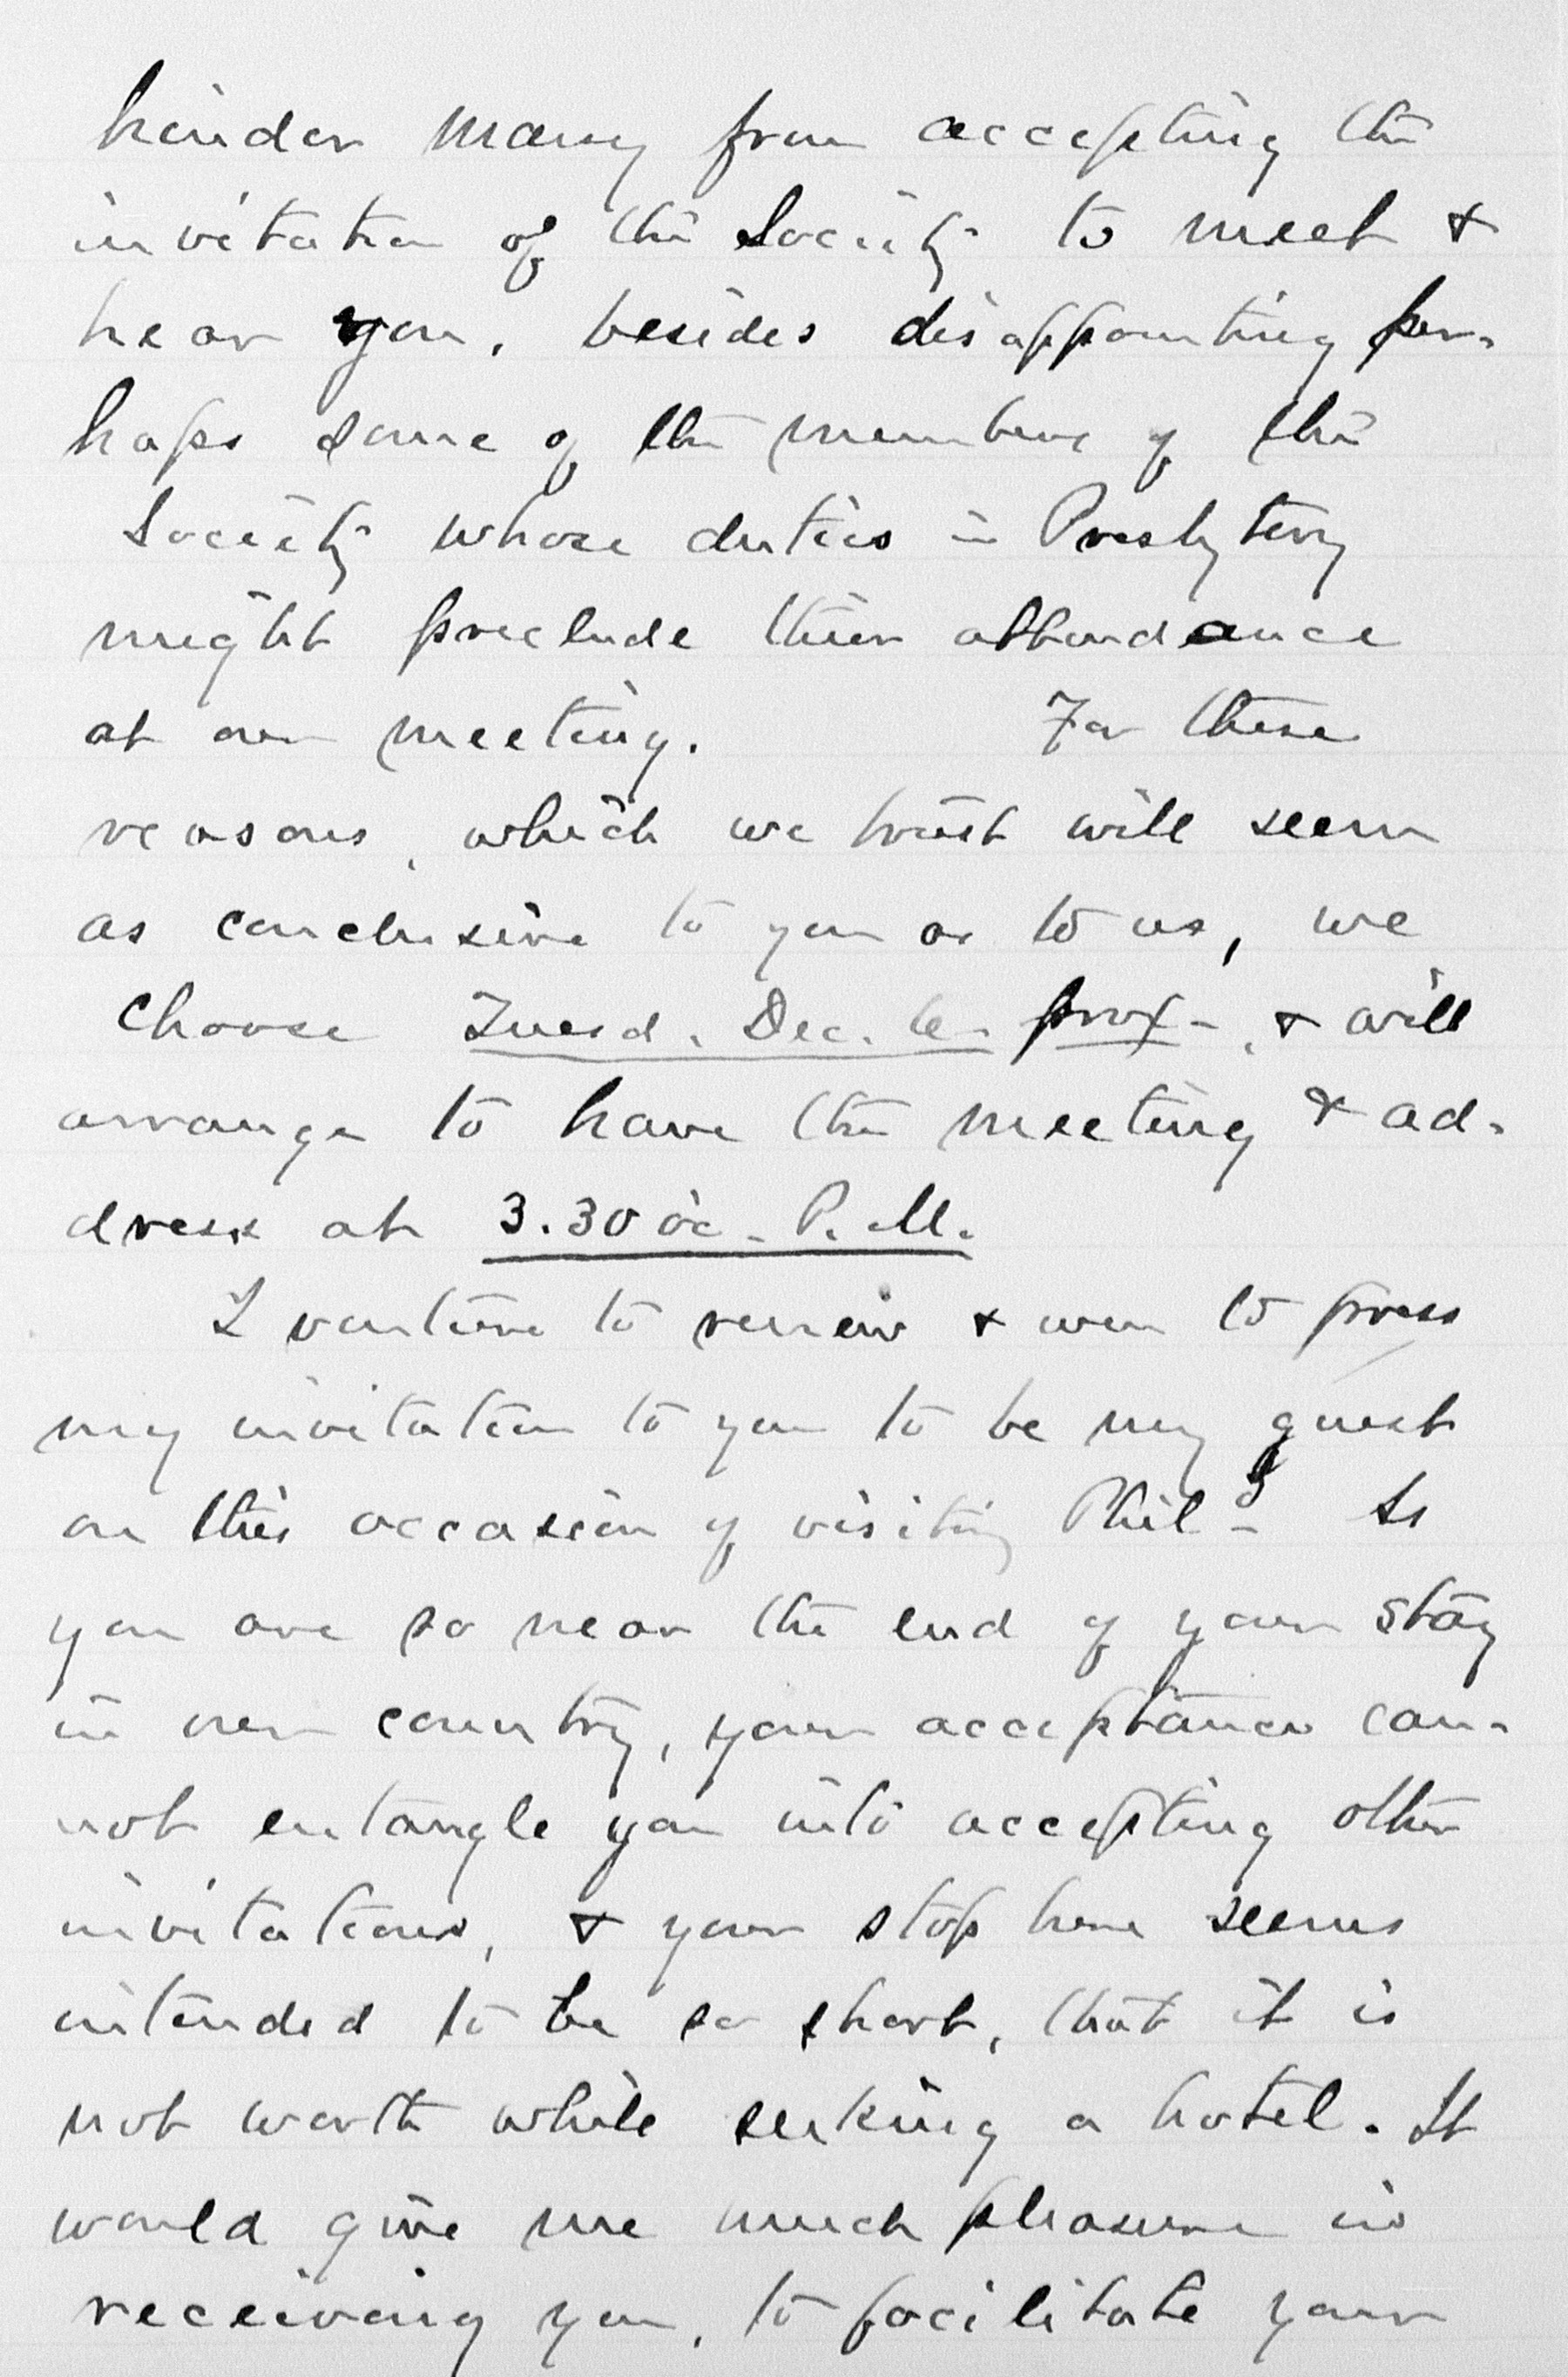 hinder many from accepting the
invitation of the Society to meet &
hear you, besides disappointing per-
haps some of the members of the
Society whose duties in Presbytery
might preclude their attendance
at our meeting. For these
reasons, which we trust will seem
as conclusive to you as to us, we
choose Tuesd. Dec. prox- , & will
arrange to have the meeting & ad-
dress at 3.30 o'c. P. M.
I venture to renew & even to press
my invitation to you to be my guest
on this occasion of visiting Phila As
you are so near the end of your stay
in our country, your acceptance can-
not entangle you into accepting other
invitations, & your stop here seems
intended to be so short, that it is
not worth while seeking a hotel. It
would give me much pleasure in
receiving you, to facilitate your